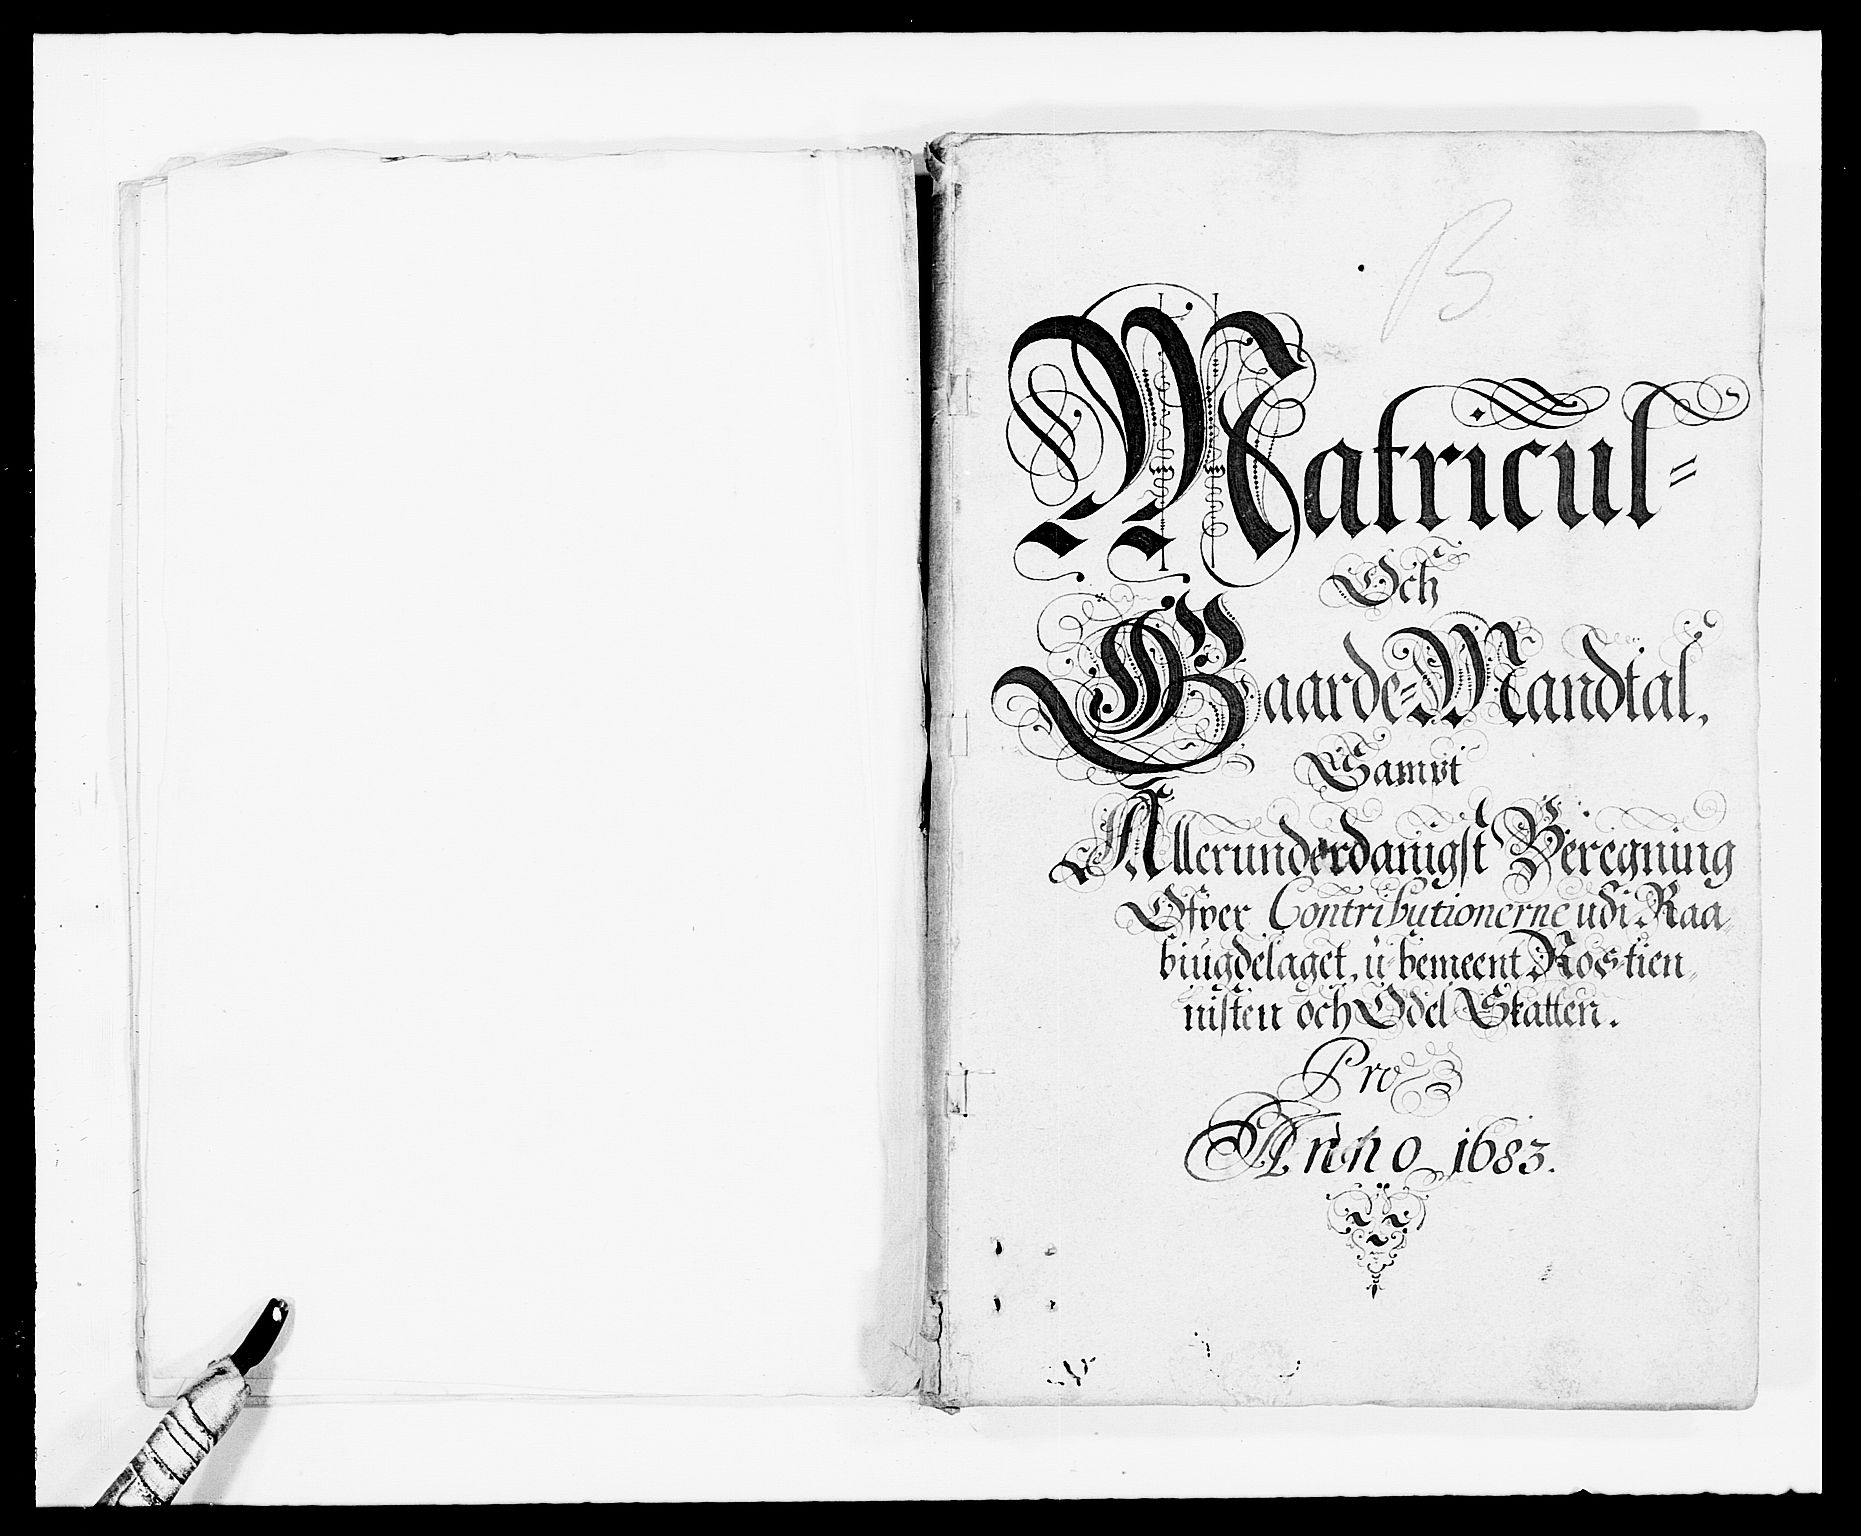 B
Matricul=
Och
Gaarde=Mandtal,
Sampt
Allerunderdanigst Beregning
Ofver Contributionerne udi Raa=
biugdelaget, u=bemeent Ros=tien=
nisten och Odel Skatten.
Pro
Anno 1683.